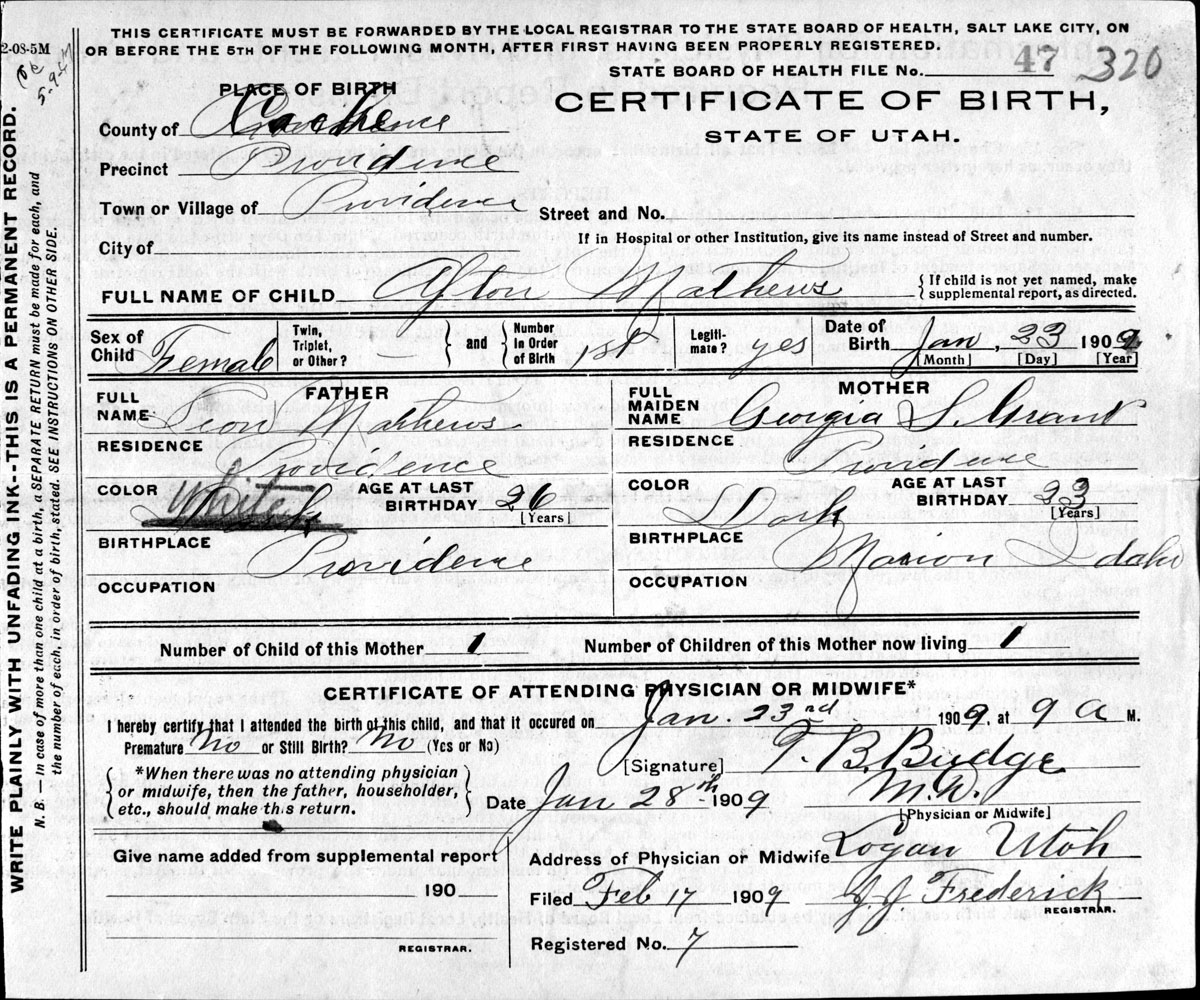 THIS CERTIFICATE MUST BE FORWARDED BY THE LOCAL REGISTRAR TO THE STATE BOARD OF HEALTH, SALT LAKE CITY, ON
2-08-5M OR BEFORE THE 5TH OF THE FOLLOWING MONTH, AFTER FIRST HAVING BEEN PROPERLY REGISTERED.
5-9-
STATE BOARD OF HEALTH FILE No. 47 320
PLACE OF BIRTH
CERTIFICATE OF BIRTH,
STATE OF UTAH.
County of Cache
Precinct Providence
Town or Village of Providence Street and No.
City of If in Hospital or other Institution, give its name instead of Street and number.
FULL NAME OF CHILD Afton Mathews { If child is not yet named, make supplemental report, as directed.
Sex of Child Female Twin, Triplet, or Other? — } and { Number in Order of Birth 1st Legiti-mate? yes Date of Birth Jan, 23 1909
[Month] [Day] [Year]
FATHER MOTHER
FULL NAME Leon Mathews FULL MAIDEN NAME Georgia S. Grant
RESIDENCE Providence RESIDENCE Providence
COLOR White AGE AT LAST BIRTHDAY 26 [Years] COLOR Dark AGE AT LAST BIRTHDAY 23 [Years]
BIRTHPLACE Providence BIRTHPLACE Marion Idaho
OCCUPATION OCCUPATION
Number of Child of this Mother 1 Number of Children of this Mother now living 1
CERTIFICATE OF ATTENDING PHYSICIAN OR MIDWIFE*
I hereby certify that I attended the birth of this child, and that it occured on Jan. 23rd 1909, at 9 a M.
Premature No or Still Birth? No (Yes or No)
[Signature] T. B. Budge
M.D.
[Physician or Midwife]
{ *When there was no attending physician
or midwife, then the father, householder,
etc., should make this return. }
Date Jan 28th 1909
Give name added from supplemental report
190
REGISTRAR.
Address of Physician or Midwife Logan Utah
Filed Feb 17 1909 J. J. Frederick
REGISTRAR.
Registered No. 7
WRITE PLAINLY WITH UNFADING INK--THIS IS A PERMANENT RECORD.
N. B. — In case of more than one child at a birth, a SEPARATE RETURN must be made for each, and
the number of each, in order of birth, stated. SEE INSTRUCTIONS ON OTHER SIDE.